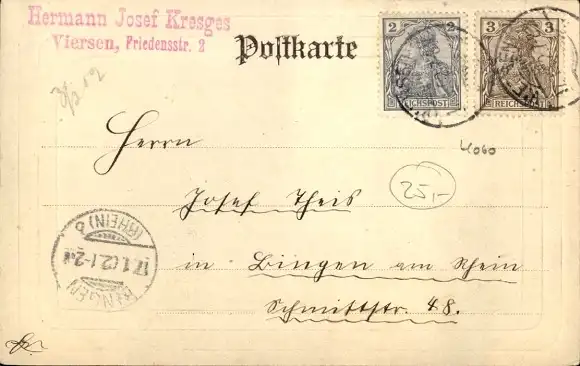 Hermann Josef Kresges
Viersen, Friedensstr. 2
Postkarte
2
REICHSPOST
3
REICHSPOST
4060
Herrn
25,-
Josef Theis
in Bingen am Rhein
Schmittstr. 48.
BINGEN
17.1.02.1-2
(RHEIN)